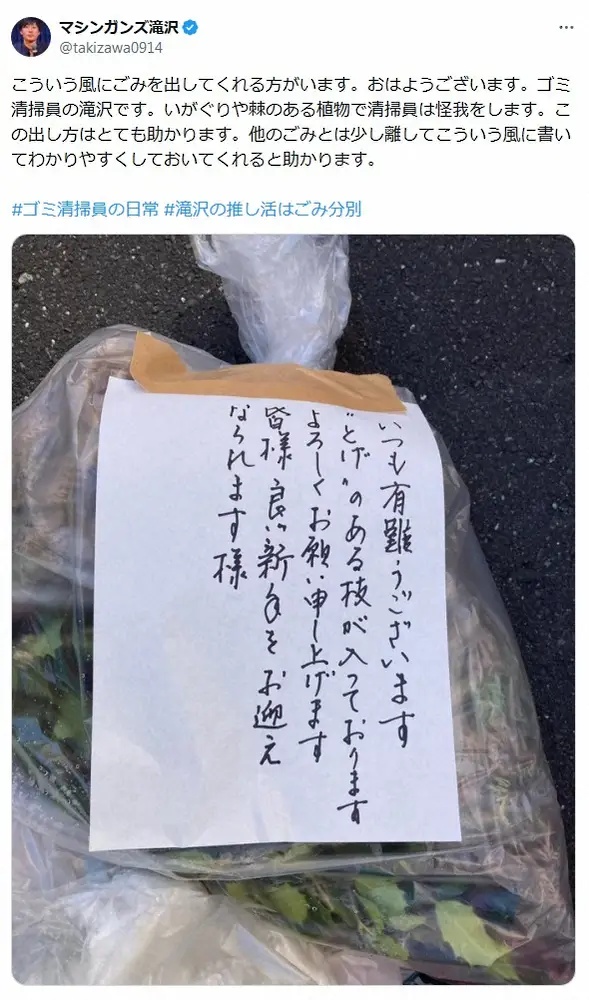 マシンガンズ滝沢
@takizawa0914
こういう風にごみを出してくれる方がいます。おはようございます。ゴミ
清掃員の滝沢です。いがぐりや棘のある植物で清掃員は怪我をします。こ
の出し方はとても助かります。他のごみとは少し離してこういう風に書い
てわかりやすくしておいてくれると助かります。
#ゴミ清掃員の日常 #滝沢の推し活はごみ分別
いつも有難うございます
"とげ"のある枝が入っております
よろしくお願い申し上げます
皆様良い新年をお迎え
なられます様